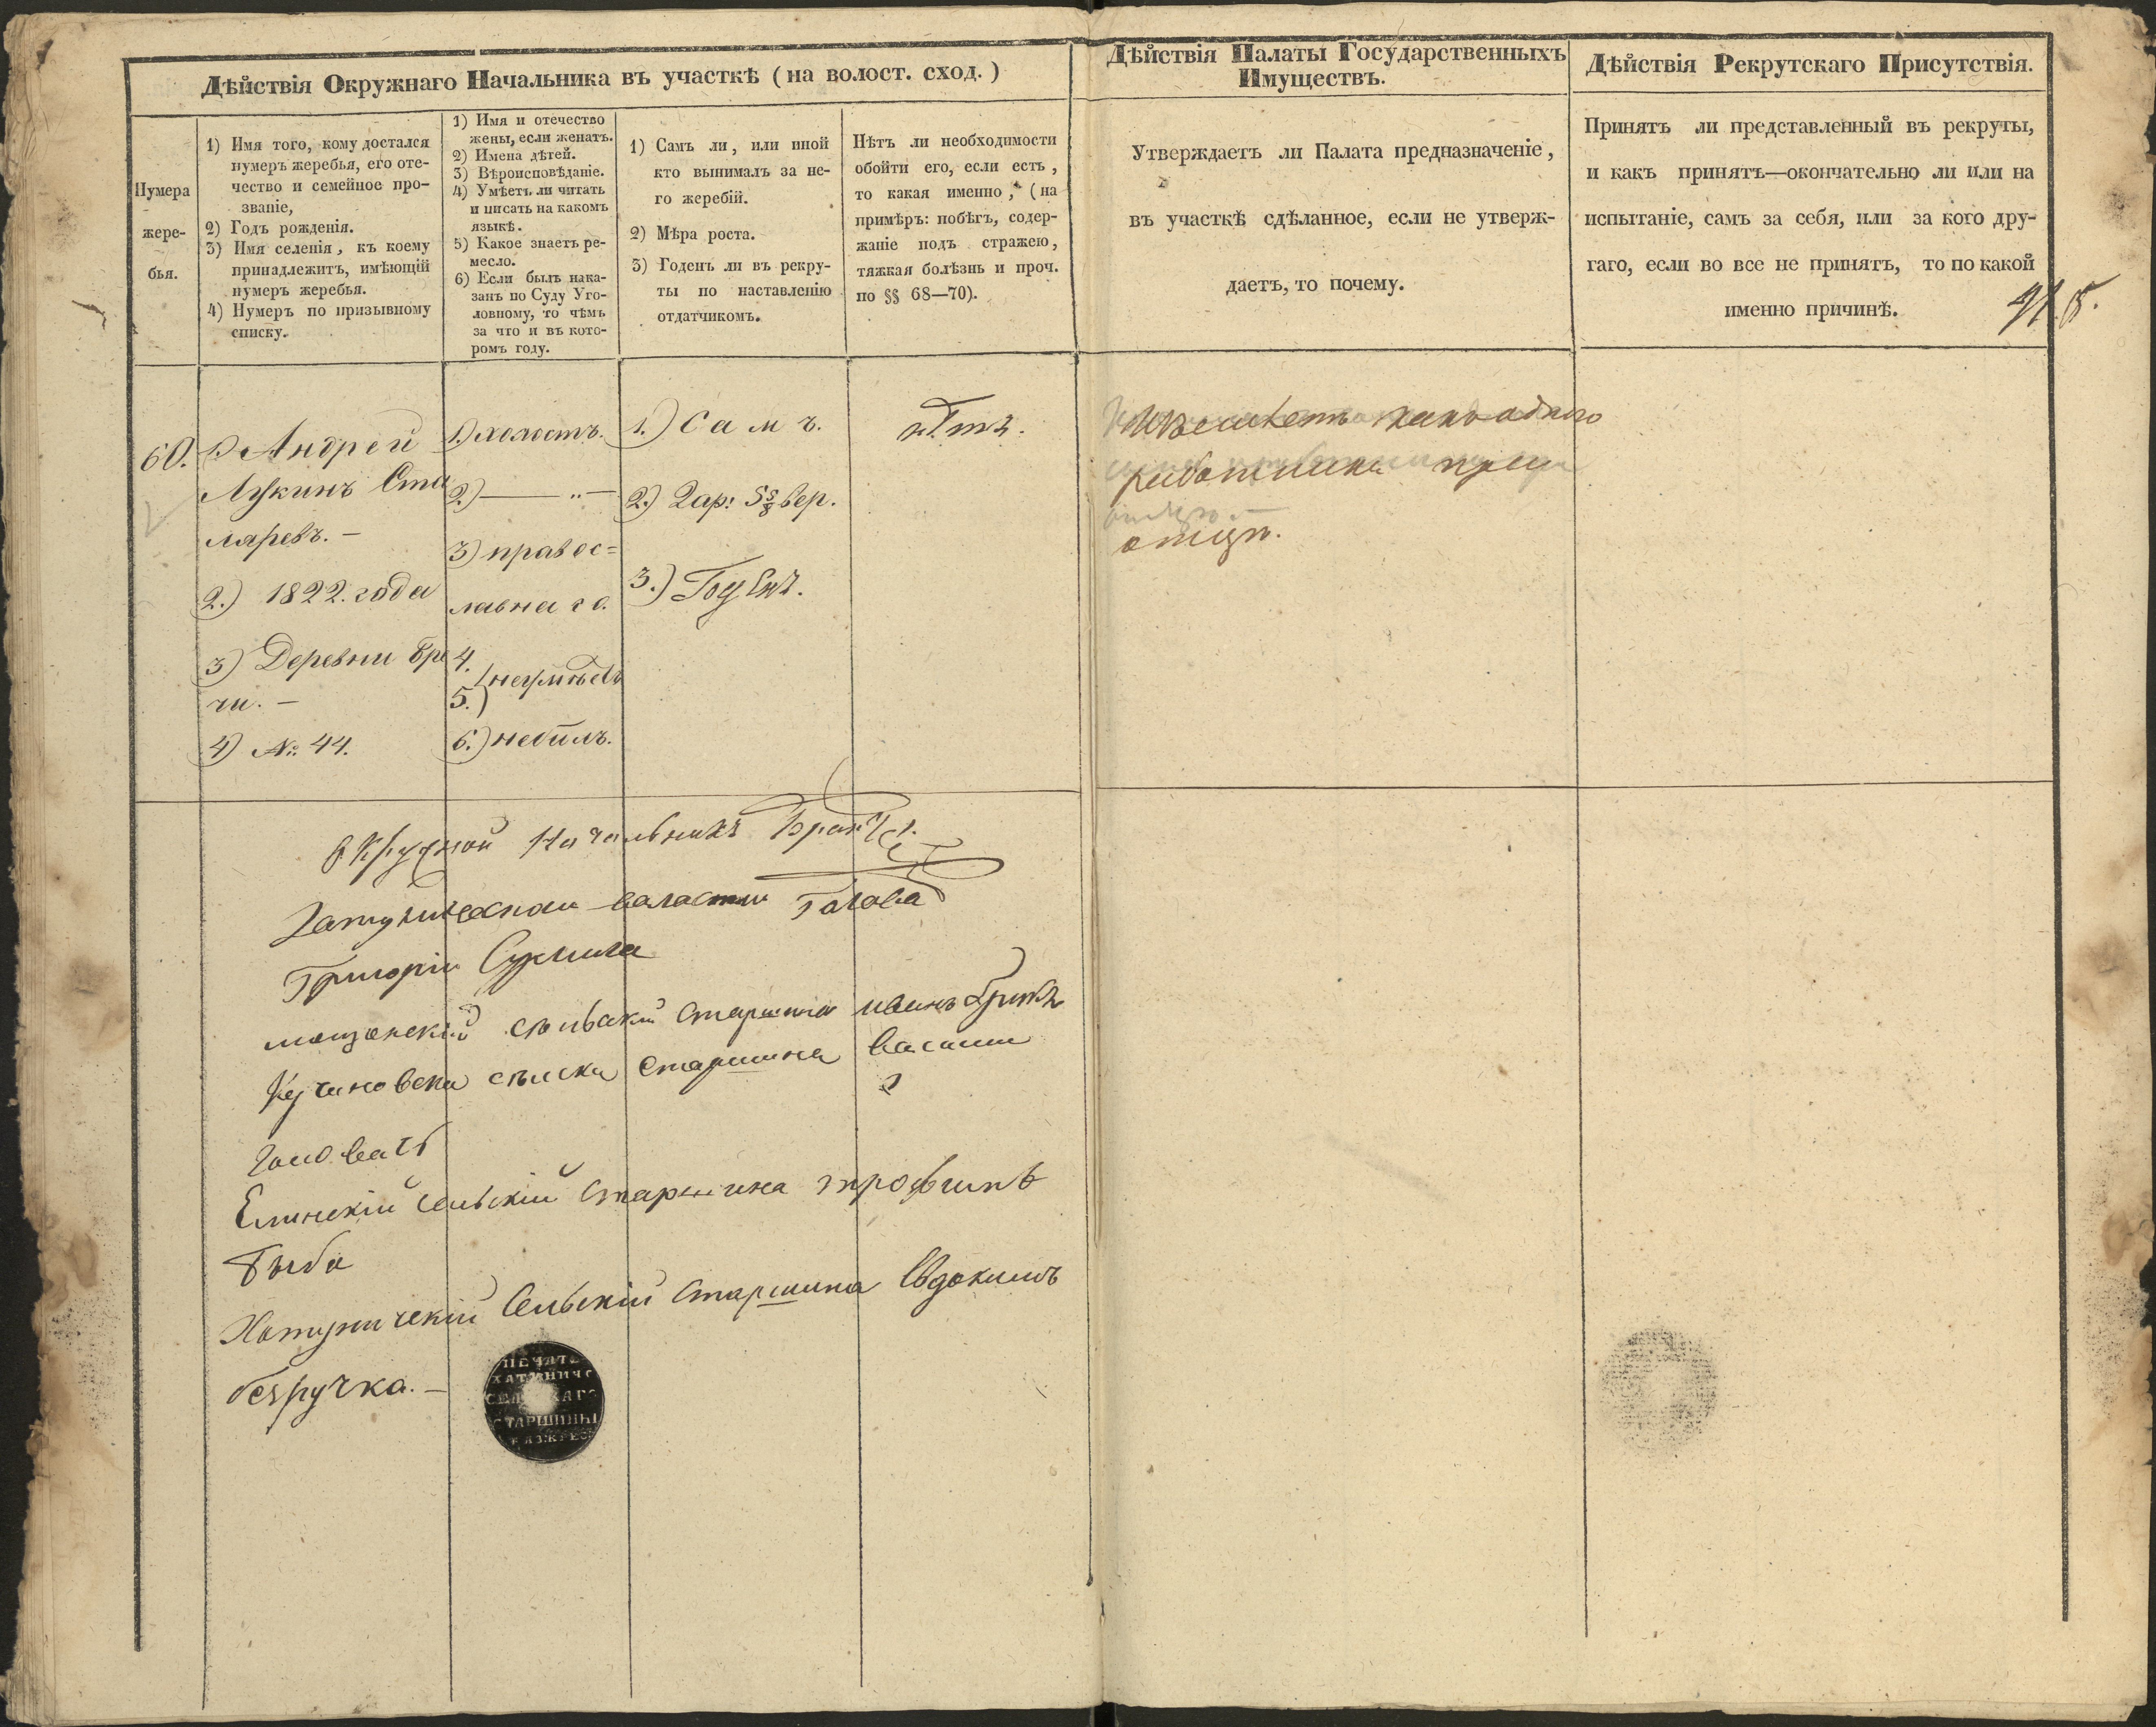 Дѣйствія Окружнаго Начальника въ участкѣ (на волост. сход.)
Дѣйствія Палаты Государственныхъ
Имуществъ.
Дѣйствія Рекрутскаго Присутствія.
Нумера
жере-
бья.
1) Имя того, кому достался
нумеръ жеребья, его оте-
чество и семейное про-
званіе,
2) Годъ рожденія.
3) Имя селенія, къ коему
принадлежитъ, имѣющій
нумеръ жеребья.
4) Нумеръ по призывному
списку.
1) Имя и отечество
жены, если женатъ.
2) Имена дѣтей.
3) Вѣроисповѣданіе.
4) Умѣетъ ли читать
и писать на какомъ
языкѣ.
5) Какое знаетъ ре-
месло.
6) Если былъ нака-
занъ по Суду Уго-
ловному, то чѣмъ
за что и въ кото-
ромъ году.
1) Самъ ли, или иной
кто вынималъ за не-
го жеребій.
2) Мѣра роста.
3) Годенъ ли въ рекру-
ты по наставленію
отдатчикомъ.
Нѣтъ ли необходимости
обойти его, если есть,
то какая именно, (на
примѣръ: побѣгъ, содер-
жаніе подъ стражею,
тяжкая болѣзнь и проч.
по §§ 68—70).
Утверждаетъ ли Палата предназначеніе,
въ участкѣ сдѣланное, если не утверж-
даетъ, то почему.
Принятъ ли представленный въ рекруты,
и какъ принятъ—окончательно ли или на
испытаніе, самъ за себя, или за кого дру-
гаго, если во все не принятъ, то по какой
именно причинѣ.
60.
1) Андрей
Лукинъ Сто
ляревъ. —
2.) 1822. года
3) Деревни
чи. —
4) №. 44.
1.) холостъ.
2.) — „ —
3) правос=
лавнаго.
4.
5.) неумѣетъ
6.) небылъ.
1.) Самъ.
2.) 2 ар: 5 5/8 вер.
3.) Годенъ.
нѣтъ.
какъ одного
работника при
отцѣ.
Окружной Начальникъ
волости Голова
Григорій
сельскій старшина иванъ
сѣлски старшина Васили
Головачъ
Елинскій Сельскій Старшина трофимъ
Рыба
Хатуничскій Сельскій Старшина Евдокимъ
безручка. —
ПЕЧЯТЬ
ХАТУНИЧС
СЕЛ КАГО
СТАРШИНЫ